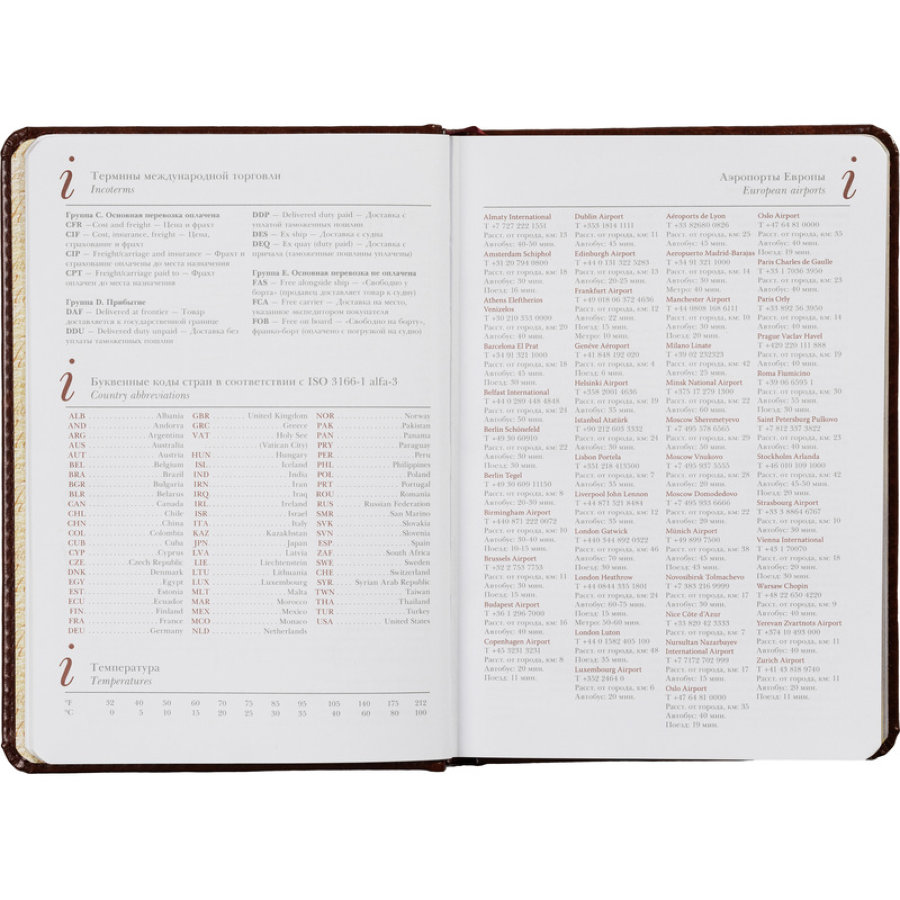 Термины международной торговли
Incoterms
Группа C. Основная перевозка оплачена
CFR —Cost and freight — Цена и фрахт
CIF — Cost, insurance, freight — Цена,
страхование и фрахт
CIP — Freight/carriage and insurance — Фрахт и
страхование оплачены до места назначения
CPT — Freight/carriage paid to — Фрахт
оплачен до места назначения
Группа D. Прибытие
DAF — Delivered at frontier — Товар
доставляется к государственной границе
DDU — Delivered duty unpaid — Доставка без
уплаты таможенных пошлин
DDP — Delivered duty paid — Доставка с
уплатой таможенных пошлин
DES — Ex ship — Доставка с судна
DEQ — Ex quay (duty paid) — Доставка с
причала (таможенные пошлины уплачены)
Группа E. Основная перевозка не оплачена
FAS — Free alongside ship — «Свободно у
борта» (продавец доставляет товар к судну)
FCA — Free carrier — Доставка на место,
указанное экспедитором покупателя
FOB — Free on board — «Свободно на борту»,
франко-борт (оплачено с погрузкой на судно)
Буквенные коды стран в соответствии с ISO 3166-1 alfa-3
Country abbreviations
ALB Albania
AND Andorra
ARG Argentina
AUS Australia
AUT Austria
BEL Belgium
BRA Brazil
BGR Bulgaria
BLR Belarus
CAN Canada
CHL Chile
CHN China
COL Colombia
CUB Cuba
CYP Cyprus
CZE Czech Republic
DNK Denmark
EGY Egypt
EST Estonia
ECU Ecuador
FIN Finland
FRA France
DEU Germany
GBR United Kingdom
GRC Greece
VAT Holy See
(Vatican City)
HUN Hungary
ISL Iceland
IND India
IRN Iran
IRQ Iraq
IRL Ireland
ISR Israel
ITA Italy
KAZ Kazakhstan
JPN Japan
LVA Latvia
LIE Liechtenstein
LTU Lithuania
LUX Luxembourg
MLT Malta
MAR Morocco
MEX Mexico
MCO Monaco
NLD Netherlands
NOR Norway
PAK Pakistan
PAN Panama
PRY Paraguay
PER Peru
PHL Philippines
POL Poland
PRT Portugal
ROU Romania
RUS Russian Federation
SMR San Marino
SVK Slovakia
SVN Slovenia
ESP Spain
ZAF South Africa
SWE Sweden
CHE Switzerland
SYR Syrian Arab Republic
TWN Taiwan
THA Thailand
TUR Turkey
USA United States
Температура
Temperatures
°F 32 40 50 60 70 75 85 95 105 140 175 212
°C 0 5 10 15 20 25 30 35 40 60 80 100
Аэропорты Европы
European airports
Almaty International
T +7 727 222 1551
Расст. от города, км: 13
Автобус: 40-50 мин.
Amsterdam Schiphol
T +31 20 794 0800
Расст. от города, км: 18
Автобус: 30 мин.
Поезд: 16 мин.
Athens Eleftherios
Venizelos
T +30 210 353 0000
Расст. от города, км: 20
Автобус: 40 мин.
Barcelona El Prat
T +34 91 321 1000
Расст. от города, км: 18
Автобус: 45 мин.
Поезд: 30 мин.
Belfast International
T +44 0 289 448 4848
Расст. от города, км: 24
Автобус: 50 мин.
Berlin Schönefeld
T +49 30 60910
Расст. от города, км: 22
Автобус: 30 мин.
Поезд: 30 мин.
Berlin Tegel
T +49 30 609 11150
Расст. от города, км: 8
Автобус: 20-30 мин.
Birmingham Airport
T +440 871 222 0072
Расст. от города, км: 10
Автобус: 30-40 мин.
Поезд: 10-15 мин.
Brussels Airport
T +32 2 753 7753
Расст. от города, км: 11
Автобус: 30 мин.
Поезд: 15 мин.
Budapest Airport
T +36 1 296 7000
Расст. от города, км: 16
Автобус: 40 мин.
Copenhagen Airport
T +45 3231 3231
Расст. от города, км: 8
Автобус: 20 мин.
Поезд: 11 мин.
Dublin Airport
T +353 1814 1111
Расст. от города, км: 11
Автобус: 45 мин.
Edinburgh Airport
T +44 0 131 322 5283
Расст. от города, км: 13
Автобус: 20-25 мин.
Frankfurt Airport
T +49 018 06 372 4636
Расст. от города, км: 12
Автобус: 22 мин.
Поезд: 15 мин.
Метро: 10 мин.
Genéve Aéroport
T +41 848 192 020
Расст. от города, км: 4
Поезд: 6 мин.
Helsinki Airport
T +358 2001 4636
Расст. от города, км: 19
Автобус: 35 мин.
Istanbul Atatürk
T +90 212 603 3332
Расст. от города, км: 24
Автобус: 30 мин.
Lisbon Portela
T +351 218 413500
Расст. от города, км: 7
Автобус: 35 мин.
Liverpool John Lennon
T +44 871 521 8484
Расст. от города, км: 12
Автобус: 35 мин.
London Gatwick
T +440 344 892 0322
Расст. от города, км: 46
Автобус: 70 мин.
Поезд: 30 мин.
London Heathrow
T +44 0844 335 1801
Расст. от города, км: 24
Автобус: 60-75 мин.
Поезд: 15 мин.
Метро: 50-60 мин.
London Luton
T +44 0 1582 405 100
Расст. от города, км: 48
Поезд: 35 мин.
Luxembourg Airport
T +352 2464 0
Расст. от города, км: 6
Автобус: 20 мин.
Aéroports de Lyon
T +33 82680 0826
Расст. от города, км: 25
Автобус: 45 мин.
Aeropuerto Madrid-Barajas
T +34 91 321 1000
Расст. от города, км: 14
Метро: 40 мин.
Manchester Airport
T +44 0808 168 6111
Расст. от города, км: 10
Автобус: 30 мин.
Поезд: 20 мин.
Milano Linate
T +39 02 232323
Расст. от города, км: 42
Автобус: 25 мин.
Minsk National Airport
T +375 17 279 1300
Расст. от города, км: 22
Автобус: 60 мин.
Moscow Sheremetyevo
T +7 495 578 6565
Расст. от города, км: 29
Автобус: 50 мин.
Moscow Vnukovo
T +7 495 937 5555
Расст. от города, км: 28
Автобус: 20 мин.
Moscow Domodedovo
T +7 495 933 6666
Расст. от города, км: 22
Автобус: 40 мин.
Münich Airport
T +49 899 7500
Расст. от города, км: 38
Автобус: 45 мин.
Поезд: 45 мин.
Novosibirsk Tolmachevo
T +7 383 216 9999
Расст. от города, км: 17
Автобус: 30 мин.
Nice Côte d'Azur
T +33 820 42 3333
Расст. от города, км: 7
Nursultan Nazarbayev
International Airport
T +7 7172 702 999
Расст. от города, км: 17
Автобус: 15 мин.
Oslo Airport
T +47 64 81 0000
Расст. от города, км: 35
Автобус: 40 мин.
Поезд: 19 мин.
Oslo Airport
T +47 64 81 0000
Расст. от города, км: 35
Автобус: 40 мин.
Поезд: 19 мин.
Paris Charles de Gaulle
T +33 1 7036 3950
Расст. от города, км: 23
Автобус: 40 мин.
Paris Orly
T +33 892 56 3950
Расст. от города, км: 14
Автобус: 40 мин.
Prague Vaclav Havel
T +420 220 111 888
Расст. от города, км: 19
Автобус: 40 мин.
Roma Fiumicino
T +39 06 6595 1
Расст. от города, км: 30
Автобус: 55 мин.
Поезд: 30 мин.
Saint Petersburg Pulkovo
T +7 812 337 3822
Расст. от города, км: 23
Автобус: 40 мин.
Stockholm Arlanda
T +46 010 109 1000
Расст. от города, км: 42
Автобус: 45-50 мин.
Поезд: 20 мин.
Strasbourg Airport
T +33 3 8864 6767
Расст. от города, км: 10
Автобус: 30 мин.
Vienna International
T +43 1 70070
Расст. от города, км: 18
Автобус: 20 мин.
Поезд: 30 мин.
Warsaw Chopin
T +48 22 650 4220
Расст. от города, км: 9
Автобус: 40 мин.
Yerevan Zvartnots Airport
T +374 10 493 000
Расст. от города, км: 11
Автобус: 40 мин.
Zurich Airport
T +41 43 818 9740
Расст. от города, км: 11
Автобус: 20 мин.
Поезд: 11 мин.